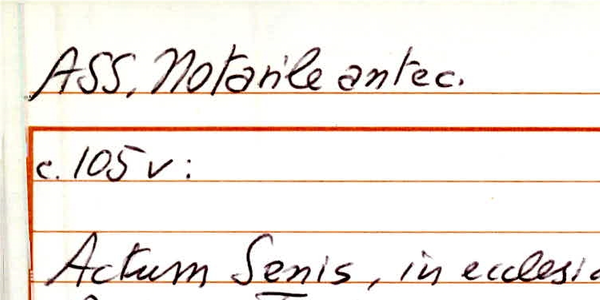 ASS, Notarile antec.
c. 105 v:
Actum Senis, in ecclesia